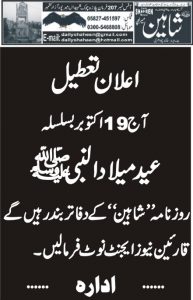 دفتر نمبر 207
05827-451597
0300-5468808
E-mail:
dailyshaheen@gmail.com
dailyshaheen@hotmail.com
شاہین
اعلان تعطیل
آج 19 اکتوبر بسلسلہ
عید میلاد النبی ﷺ
روزنامہ ”شاہین“ کے دفاتر بند رہیں گے
قارئین نیوز ایجنٹ نوٹ فرمالیں۔
...... ادارہ ......